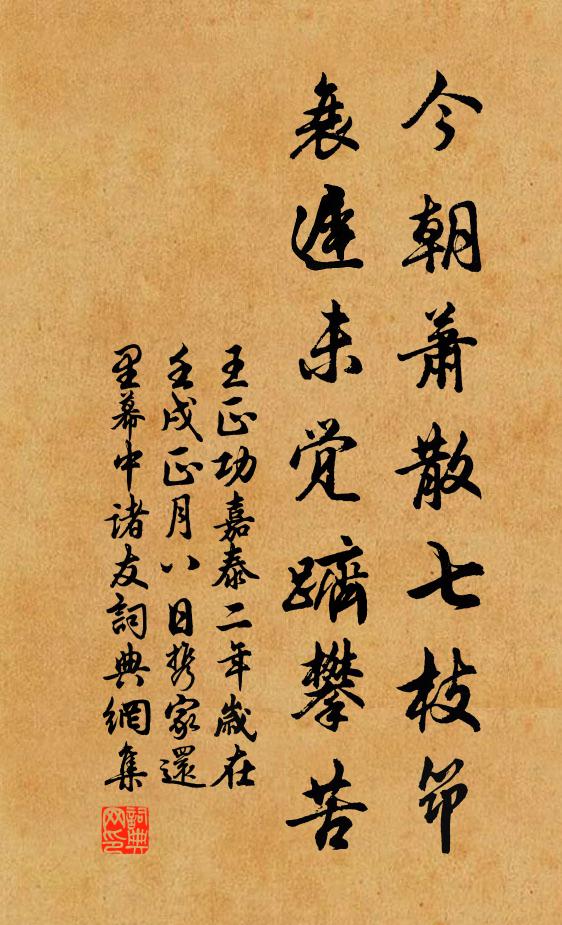 今朝蕭散七枝筇
衰遲未觉躋攀苦
王正功嘉泰二年歲在
壬戌正月八日携家還
里幕中诸友詞典網集
詞典网印